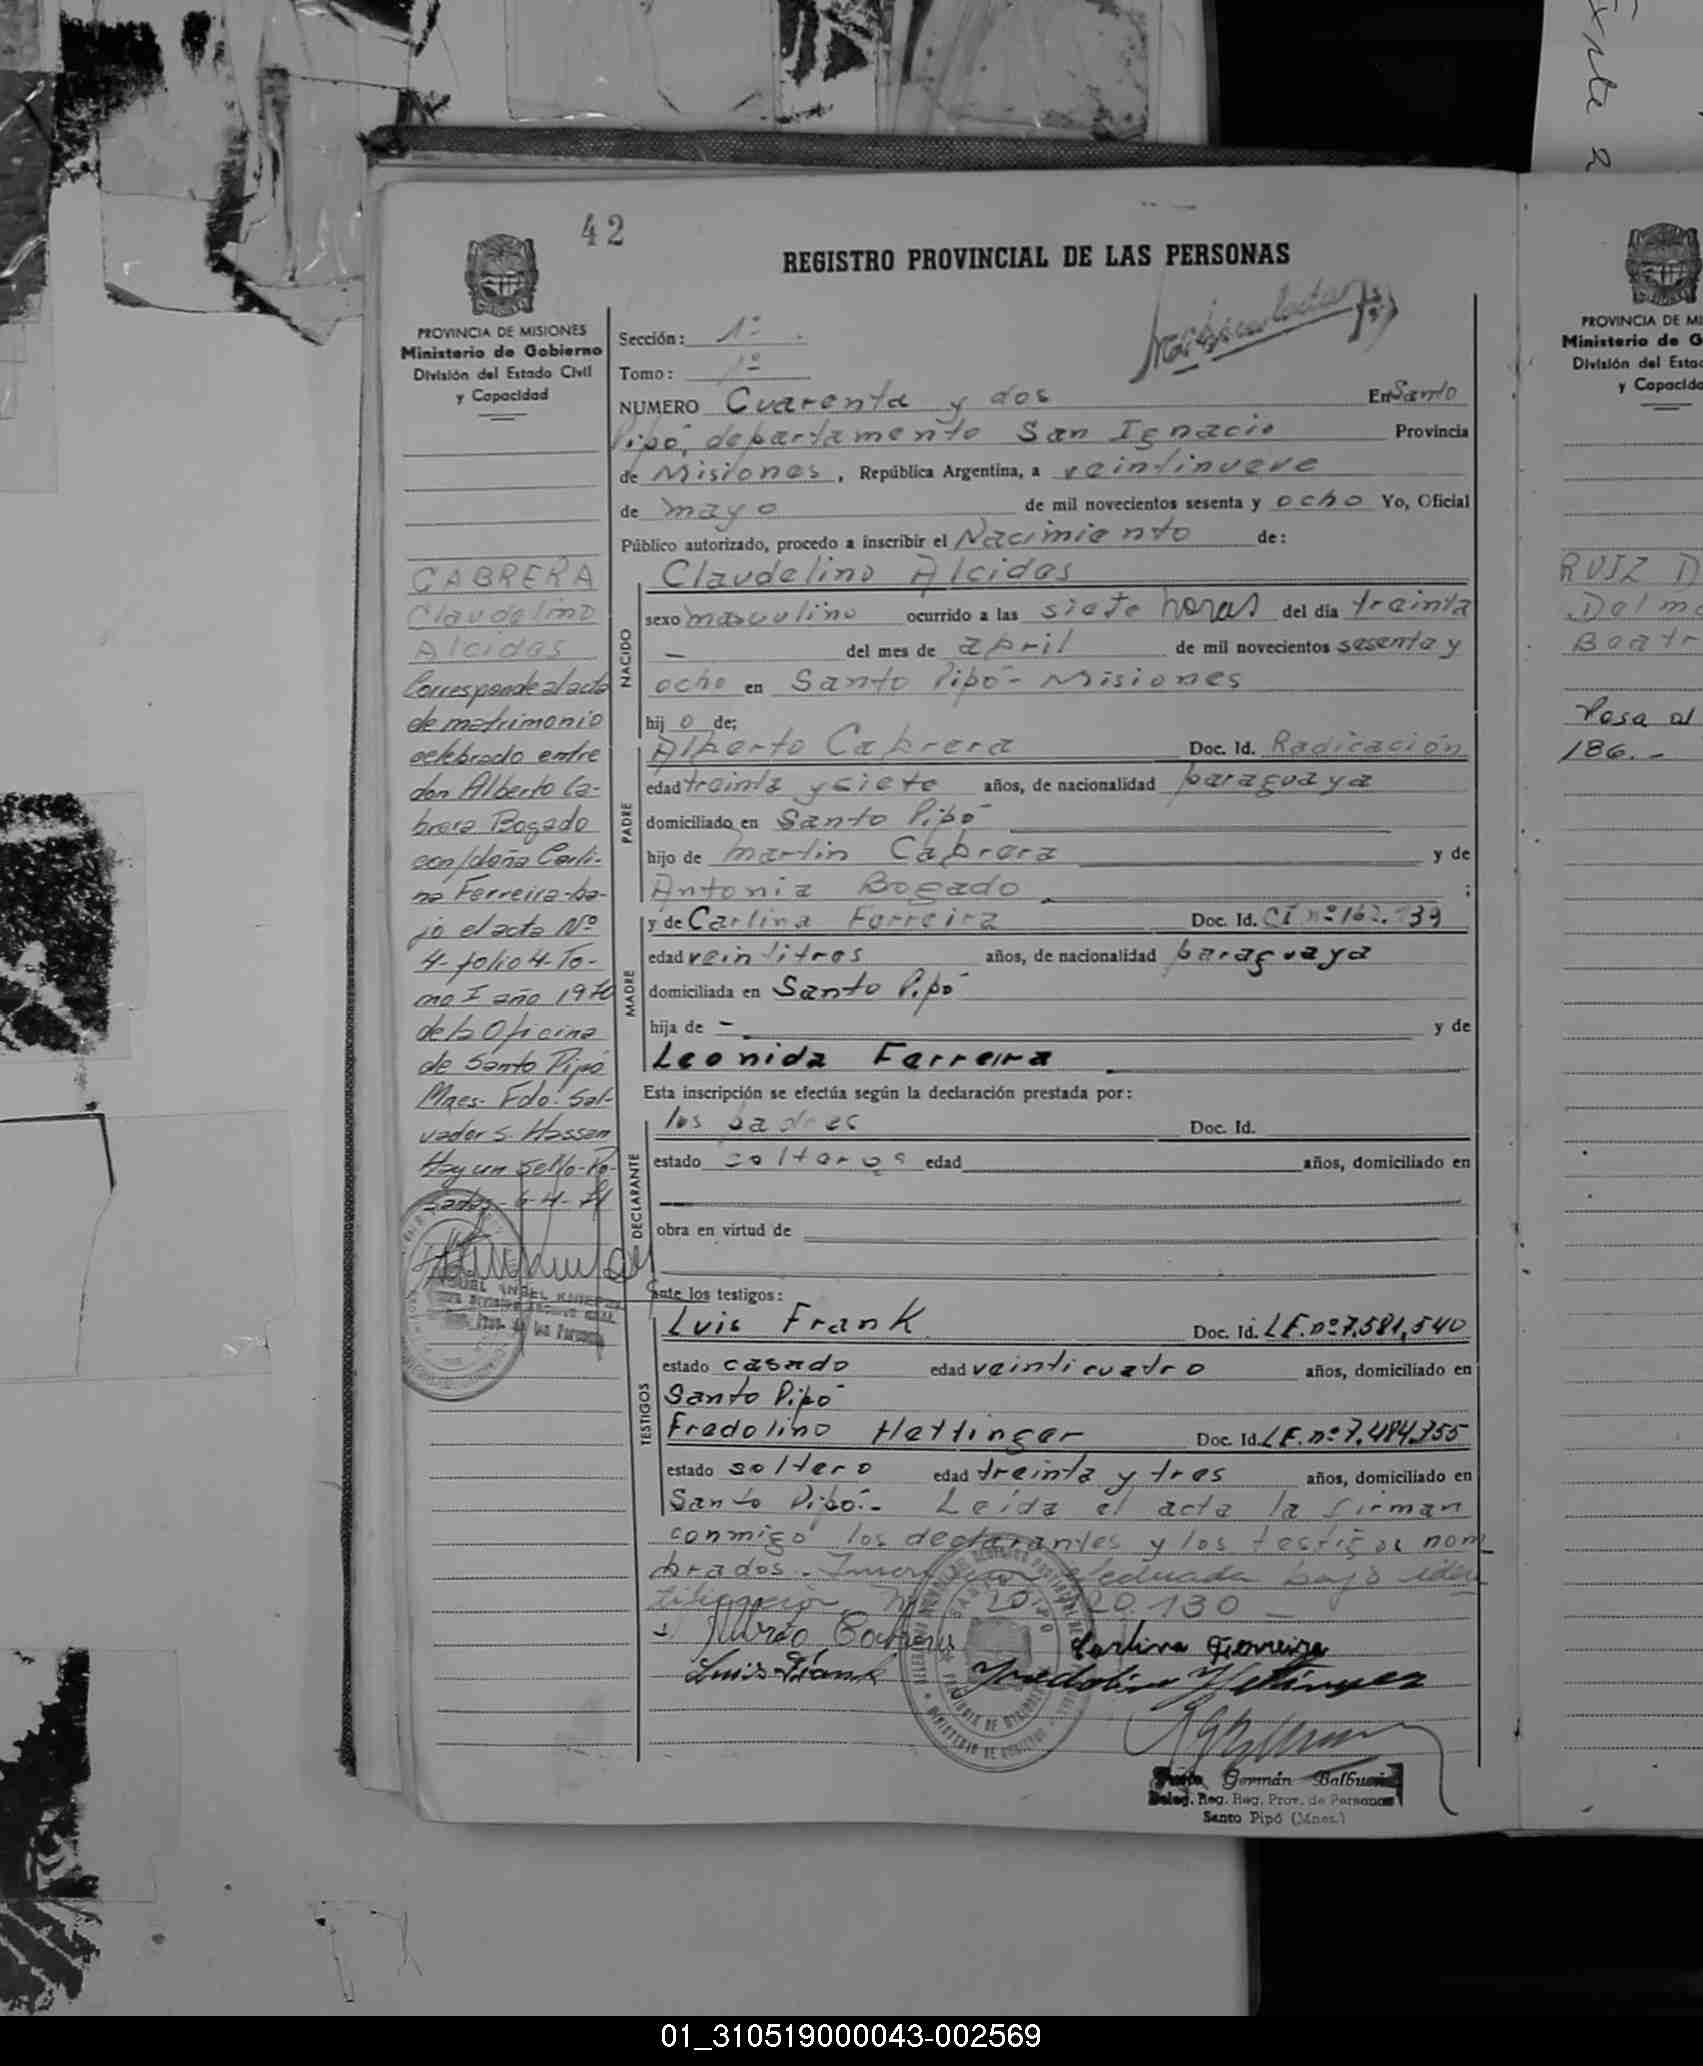 Exrte 2
42
REGISTRO PROVINCIAL DE LAS PERSONAS
PROVINCIA DE MISIONES
Ministerio de Gobierno
División del Estado Civil
y Capacidad
Sección: 1º
Tomo: 1º
NUMERO Cuarenta y dos En Santo
Pipó, departamento San Ignacio Provincia
de Misiones, República Argentina, a veintinueve
de mayo de mil novecientos sesenta y ocho Yo, Oficial
Público autorizado, procedo a inscribir el Nacimiento de:
CABRERA
Claudelino
Alcides
Corresponde al acta
de matrimonio
celebrado entre
don Alberto Ca-
brera Bogado
con doña Carli-
na Ferreira-ba-
jo el acta Nº
4-folio 4-To-
mo I año 1970
de la Oficina
de Santo Pipó
Mnes. Fdo: Sal-
vador S. Hassan
Hay un Sello-Po-
sadas-6-4-71
NACIDO
Claudelino Alcides
sexo masculino ocurrido a las siete horas del día treinta
— del mes de april de mil novecientos sesenta y
ocho en Santo Pipó - Misiones
hij o de;
PADRE
Alberto Cabrera Doc. Id. Radicación
edad treinta y siete años, de nacionalidad paraguaya
domiciliado en Santo Pipó
hijo de Martin Cabrera y de
Antonia Bogado ;
MADRE
y de Carlina Ferreira Doc. Id. CI nº 162.139
edad veintitres años, de nacionalidad paraguaya
domiciliada en Santo Pipó
hija de — y de
Leonida Ferreira
Esta inscripción se efectúa según la declaración prestada por:
DECLARANTE
los padres Doc. Id.
estado solteros edad años, domiciliado en
obra en virtud de
ante los testigos:
TESTIGOS
Luis Frank Doc. Id. L.E. nº 7.581,540
estado casado edad veinticuatro años, domiciliado en
Santo Pipó
Fredolino Hettinger Doc. Id. L.E. nº 7.484.755
estado soltero edad treinta y tres años, domiciliado en
Santo Pipó.- Leída el acta la firman
conmigo los declarantes y los testigos nom
brados. efectuada bajo iden
tificación 20.130 —
Alberto Cabrera Carlina Ferreira
Luis Frank Fredolino Hettinger
Germán Balbuena
Deleg. Reg. Prov. de Personas
Santo Pipó (Mnes.)
PROVINCIA DE MI
Ministerio de G
División del Esta
y Capacida
RUIZ D
Delm
Beatr
Pasa al
186.-
01_310519000043-002569